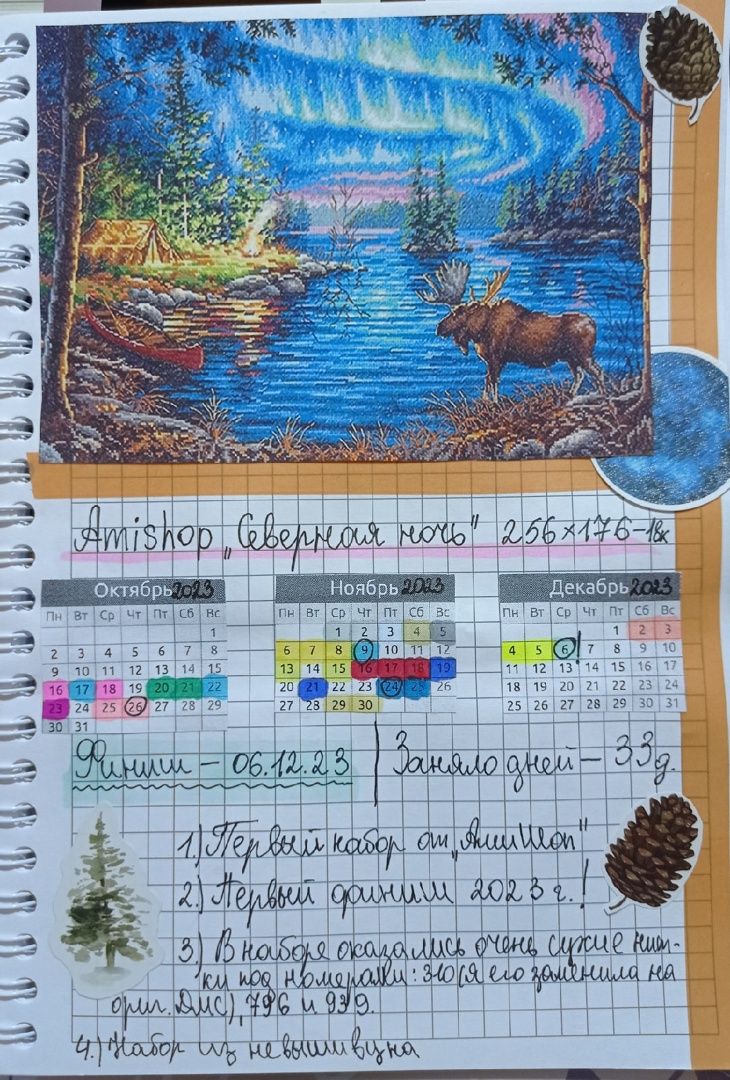 Amishop „Северная ночь" 256×176-18к
Октябрь 2023
Пн Вт Ср Чт Пт Сб Вс
1
2 3 4 5 6 7 8
9 10 11 12 13 14 15
16 17 18 19 20 21 22
23 24 25 26 27 28 29
30 31
Ноябрь 2023
Пн Вт Ср Чт Пт Сб Вс
1 2 3 4 5
6 7 8 9 10 11 12
13 14 15 16 17 18 19
20 21 22 23 24 25 26
27 28 29 30
Декабрь 2023
Пн Вт Ср Чт Пт Сб Вс
1 2 3
4 5 6! 7 8 9 10
11 12 13 14 15 16 17
18 19 20 21 22 23 24
25 26 27 28 29 30 31
Финиш – 06.12.23
Заняло дней – 33д.
1.) Первый набор от „АмиШоп"
2.) Первый финиш 2023 г.!
3.) В наборе оказались очень сухие нит-
ки под номерами: 310(я его заменила на
ориг. Дмс), 796 и 939.
4.) Набор из невышивуна